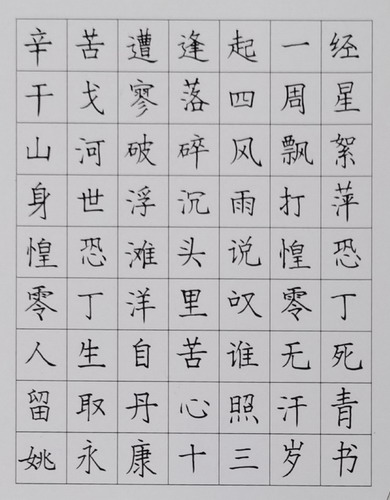 辛苦遭逢起一经
干戈寥落四周星
山河破碎风飘絮
身世浮沉雨打萍
惶恐滩头说惶恐
零丁洋里叹零丁
人生自苦谁无死
留取丹心照汗青
姚永康十三岁书